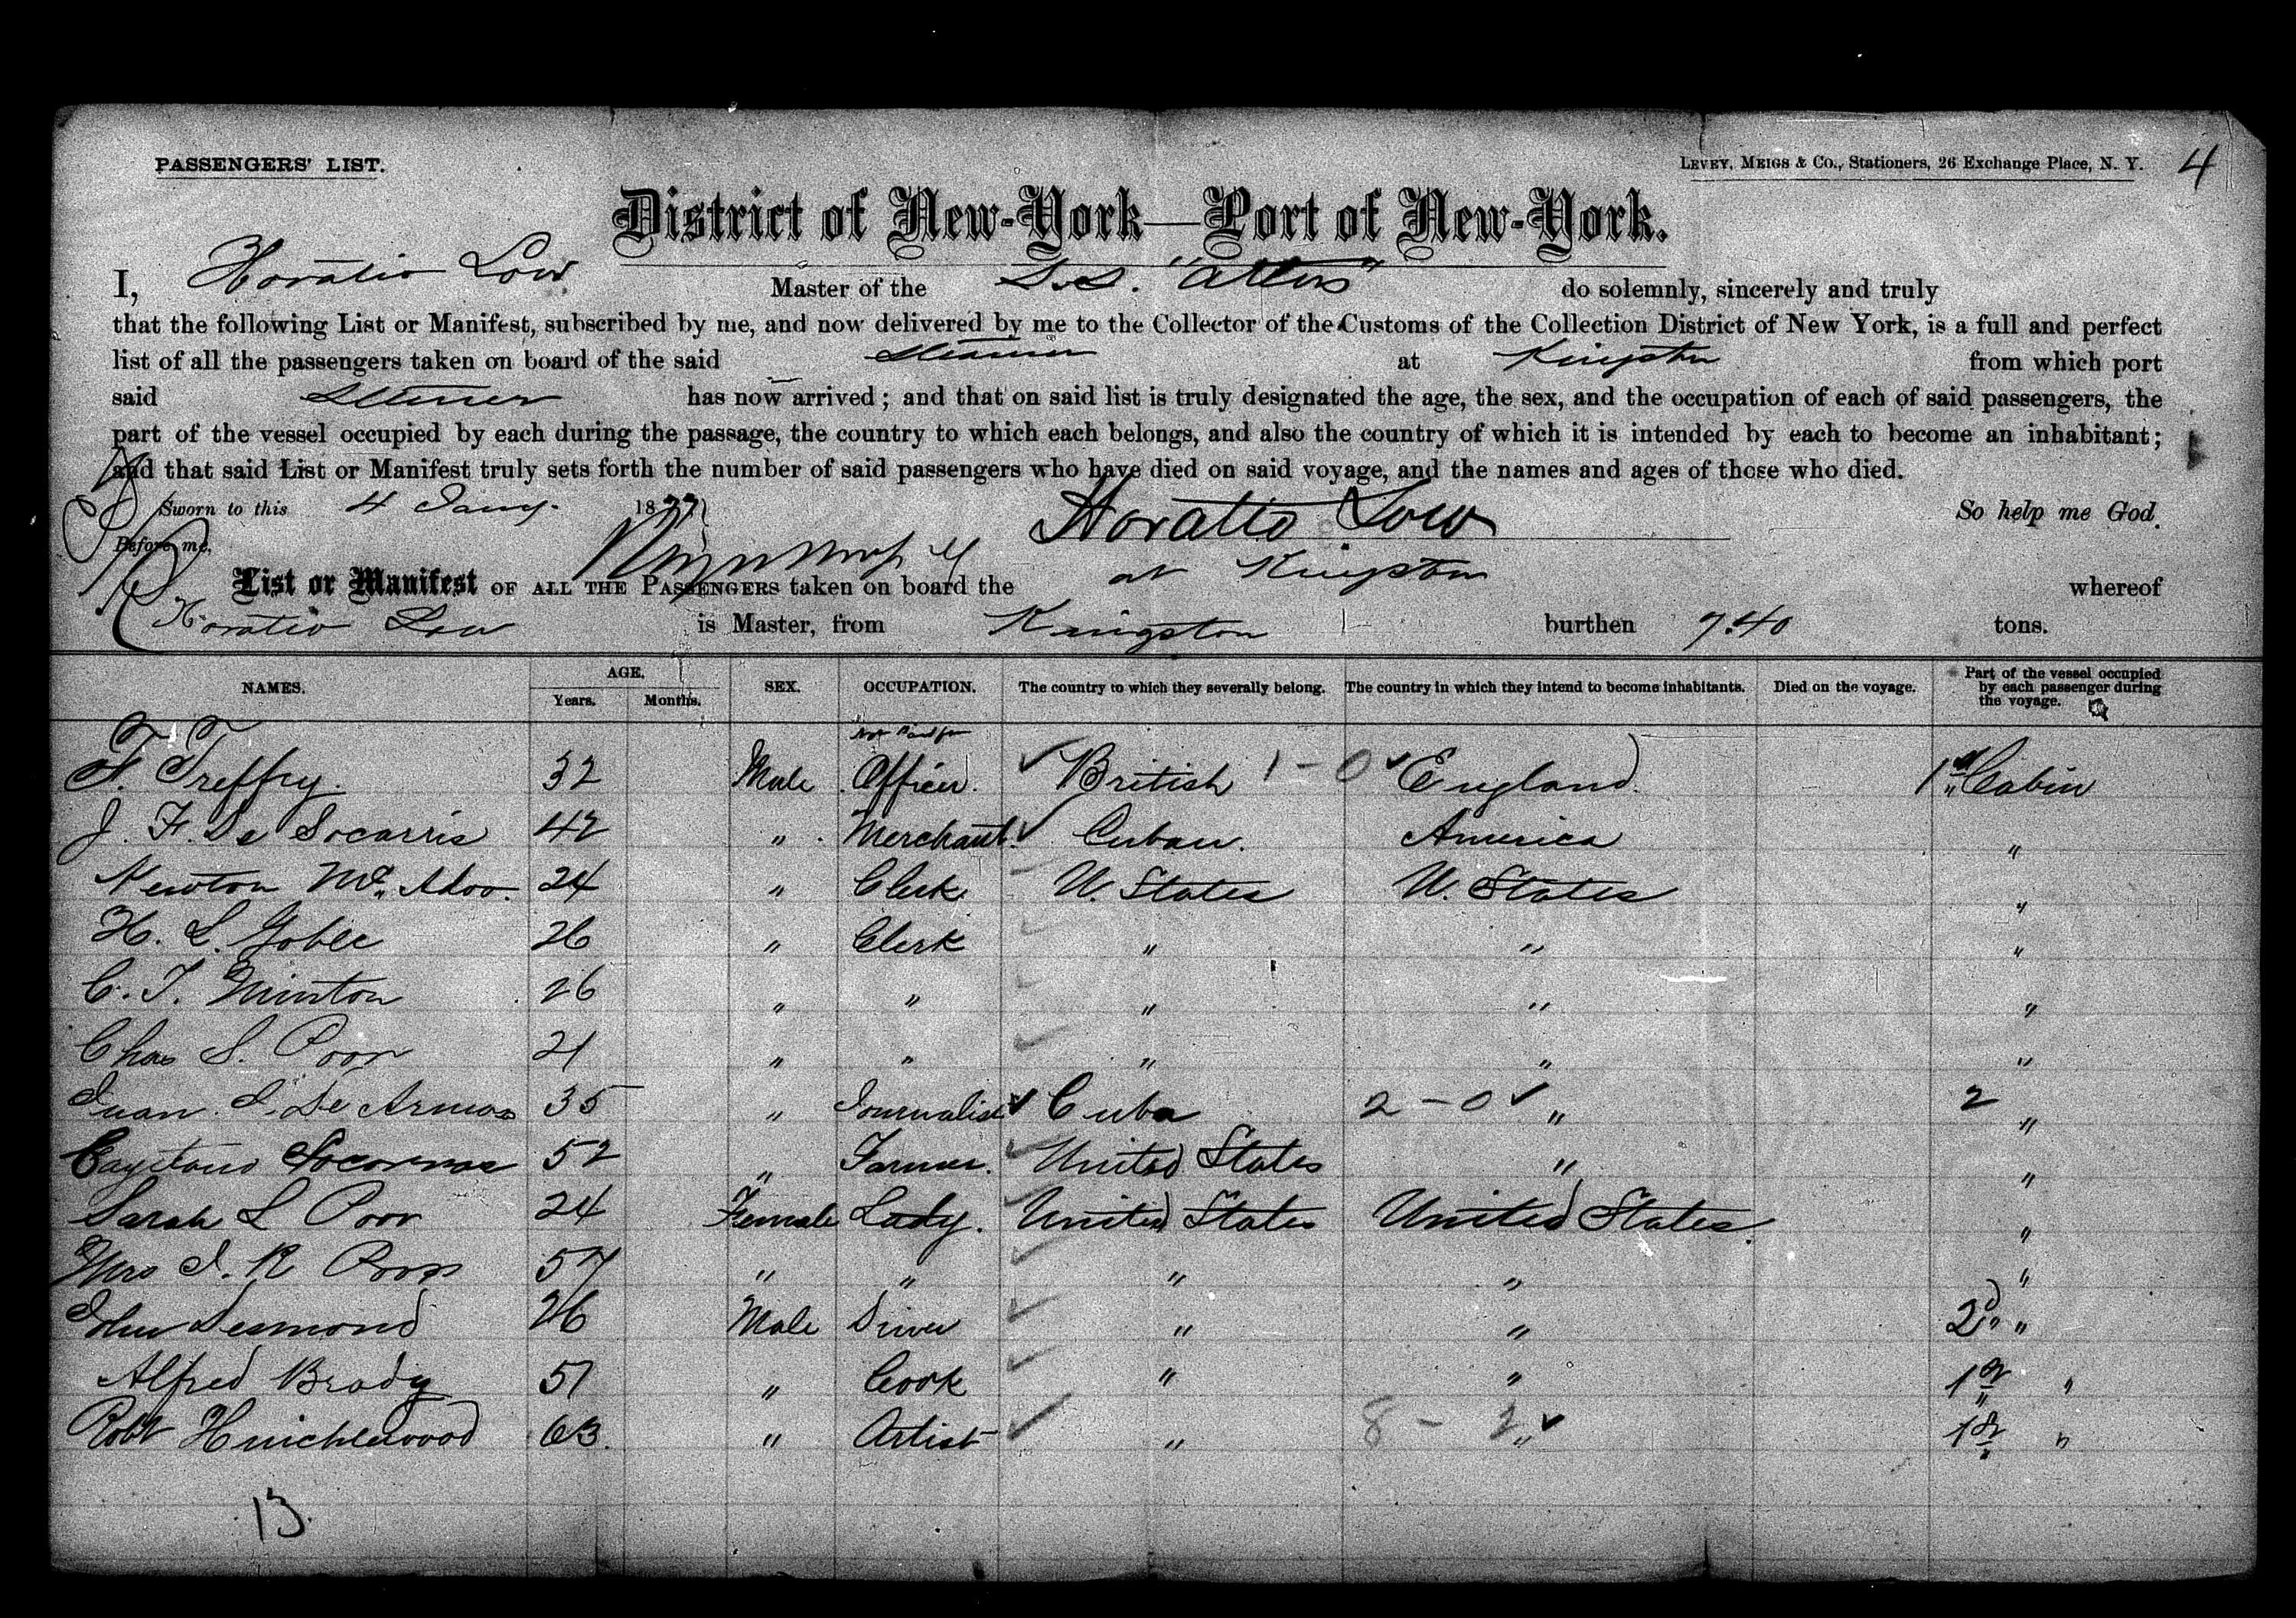 PASSENGERS' LIST.
LEVEY, MEIGS & CO., Stationers, 26 Exchange Place, N. Y. 4
District of New-York—Port of New-York.
I, Horatio Low Master of the S.S. "Atlas" do solemnly, sincerely and truly
that the following List or Manifest, subscribed by me, and now delivered by me to the Collector of the Customs of the Collection District of New York, is a full and perfect
list of all the passengers taken on board of the said Steamer at Kingston from which port
said Steamer has now arrived; and that on said list is truly designated the age, the sex, and the occupation of each of said passengers, the
part of the vessel occupied by each during the passage, the country to which each belongs, and also the country of which it is intended by each to become an inhabitant;
and that said List or Manifest truly sets forth the number of said passengers who have died on said voyage, and the names and ages of those who died.
Sworn to this 4 Jany. 1877 Horatio Low So help me God.
Before me,
List or Manifest OF ALL THE PASSENGERS taken on board the at Kingston whereof
Horatio Low is Master, from Kingston burthen 740 tons.
NAMES. AGE. Years. Months. SEX. OCCUPATION. The country to which they severally belong. The country in which they intend to become inhabitants. Died on the voyage. Part of the vessel occupied by each passenger during the voyage.
F. Treffry. 32 Male Officer. British 1-0 England. 1st Cabin
J. F. De Socarris 42 " Merchant. Cuban. America "
Newton Mc. Adoo. 24 " Clerk U. States U. States "
H. L. Goble 26 " Clerk " " "
C. T. Minton 26 " " " " "
Chas S. Poor 21 " " " " "
Juan I. De Armas 35 " Journalist Cuba 2-0 " 2 "
Cayetano 52 " Farmer. United States " "
Sarah L Poor 24 Female Lady. United States United States. "
Mrs I. R Poor 57 " " " " "
John Desmond 26 Male Driver " " 2d " "
Alfred Brady 51 " Cook " " 1st "
Robt Hinchlewood 63. " Artist " 8 - " 1st "
13.